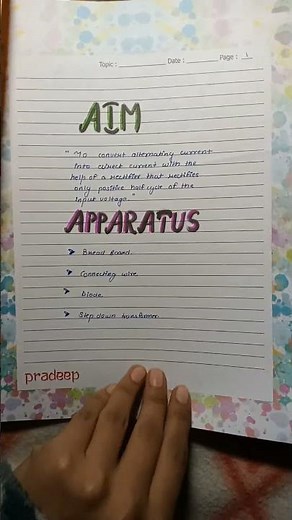 Topic : ________ Date : ________ Page : 1
AIM
" To convert alternating current
into direct current with the
help of a rectifier that rectifies
only positive half cycle of the
input voltage. "
APPARATUS
➤ Bread board.
➤ Connecting wire
➤ Diode
➤ Step down transformer
pradeep